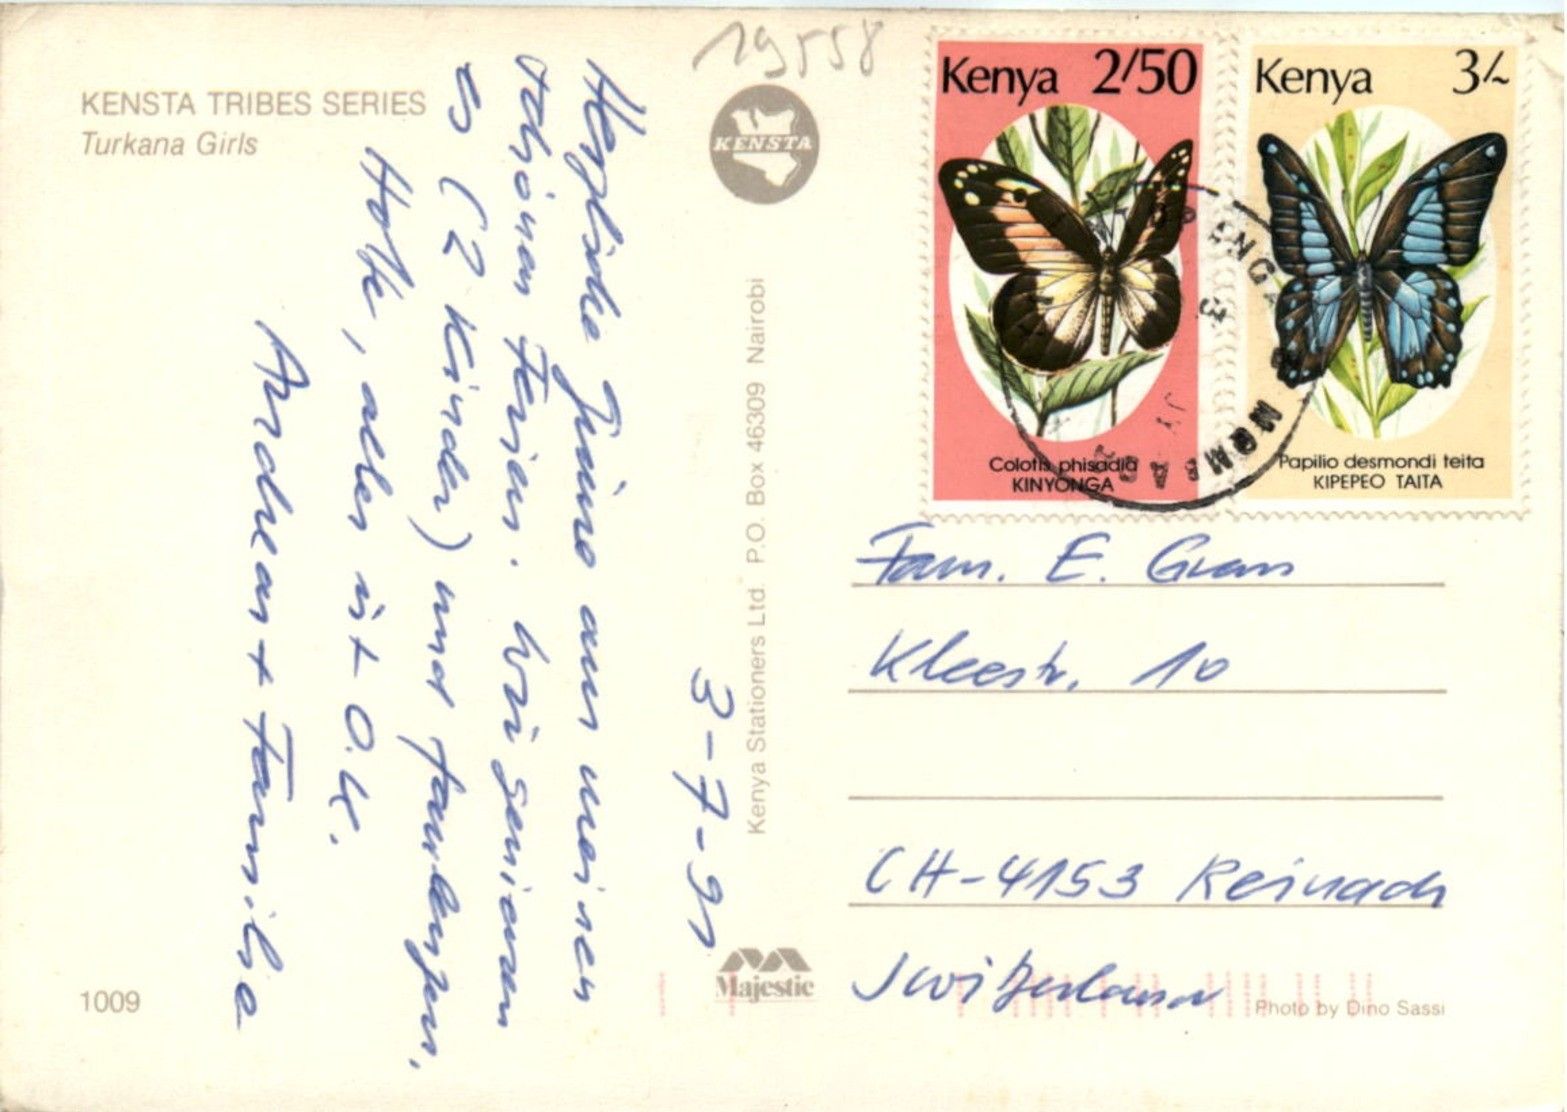 19558
KENSTA TRIBES SERIES
Turkana Girls
KENSTA
Kenya 2/50
Colotis phisadia
KINYONGA
Kenya 3/-
Papilio desmondi teita
KIPEPEO TAITA
Herzliche Grüsse aus meinen
schönen Ferien. Wir geniessen
es (2 Kinder) und faulenzen.
Hoffe, alles ist O.K.
Andreas + Familie
3-7-91
Kenya Stationers Ltd. P.O. Box 46309 Nairobi
Fam. E.
Kleestr. 10
CH-4153 Reinach
Switzerland
Majestic
1009
Photo by Dino Sassi